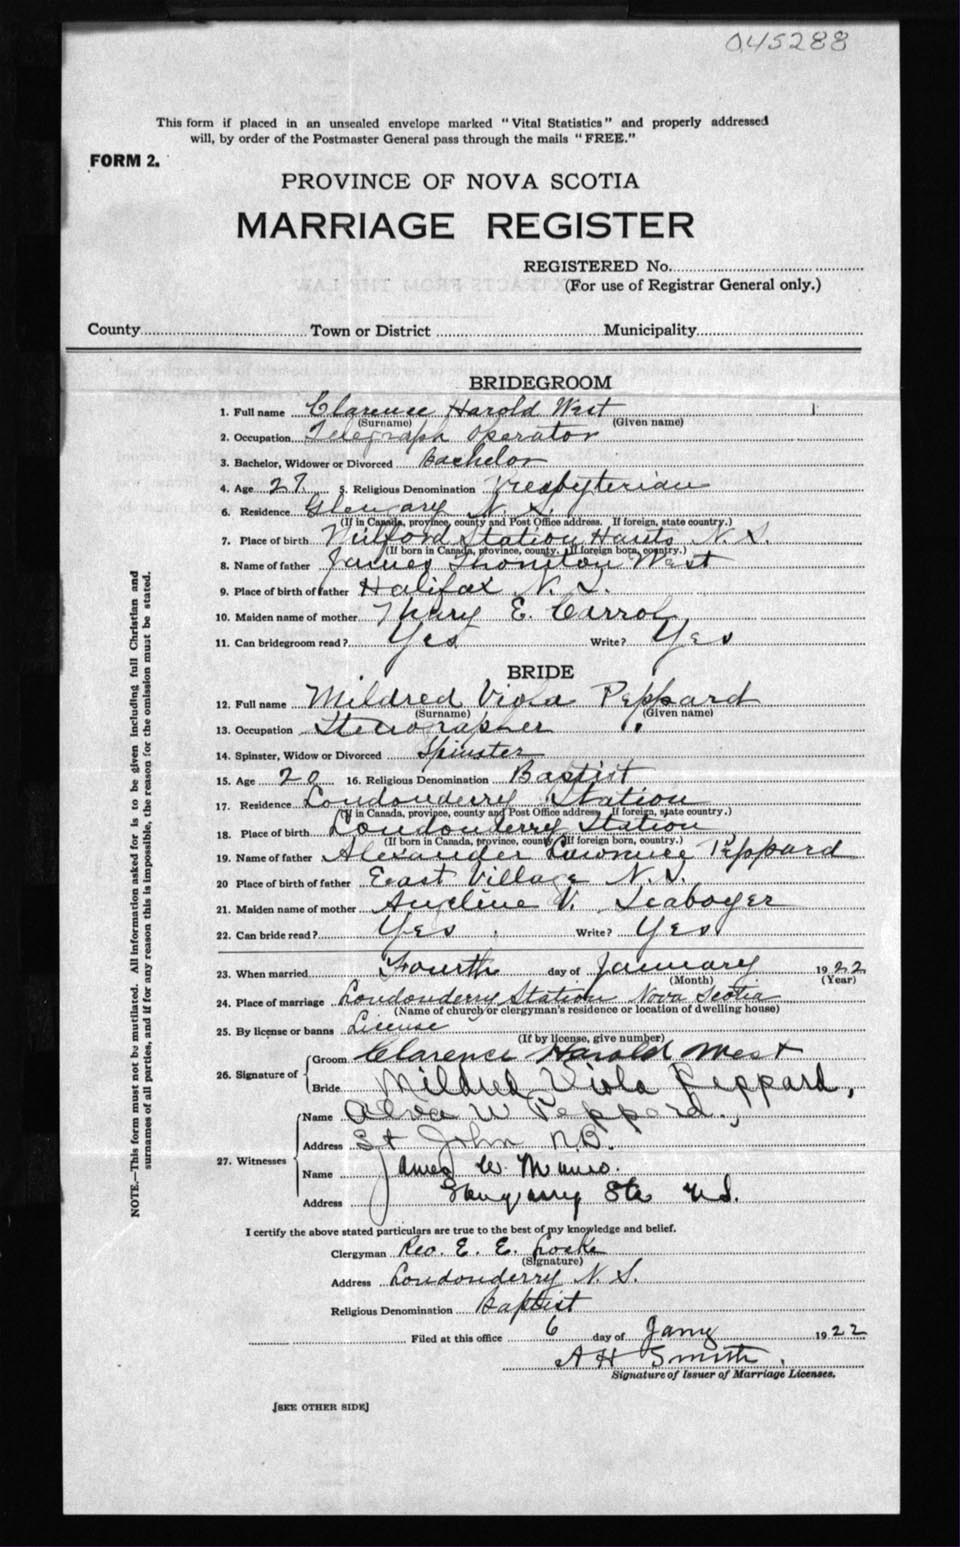 045288
This form if placed in an unsealed envelope marked "Vital Statistics" and properly addressed
will, by order of the Postmaster General pass through the mails "FREE."
FORM 2.
PROVINCE OF NOVA SCOTIA
MARRIAGE REGISTER
REGISTERED No.
(For use of Registrar General only.)
County Town or District Municipality
BRIDEGROOM
1. Full name Clarence Harold West
(Surname) (Given name)
2. Occupation Telegraph Operator
3. Bachelor, Widower or Divorced Bachelor
4. Age 27 5. Religious Denomination Presbyterian
6. Residence Glengary N. S.
(If in Canada, province, county and Post Office address. If foreign, state country.)
7. Place of birth Milford Station Hants N. S.
(If born in Canada, province, county. If foreign born, country.)
8. Name of father James Thornton West
9. Place of birth of father Halifax N. S.
10. Maiden name of mother Mary E. Carrol
11. Can bridegroom read? Yes Write? Yes
BRIDE
12. Full name Mildred Viola Peppard
(Surname) (Given name)
13. Occupation Stenographer
14. Spinster, Widow or Divorced Spinster
15. Age 20 16. Religious Denomination Baptist
17. Residence Londonderry Station
(If in Canada, province, county and Post Office address. If foreign, state country.)
18. Place of birth Londonderry Station
(If born in Canada, province, county. If foreign born, country.)
19. Name of father Alexander Lawrence Peppard
20 Place of birth of father East Village N. S.
21. Maiden name of mother V. Seaboyer
22. Can bride read? Yes Write? Yes
23. When married Fourth day of January 1922
(Month) (Year)
24. Place of marriage Londonderry Station Nova Scotia
(Name of church or clergyman's residence or location of dwelling house)
25. By license or banns License
(If by license, give number)
26. Signature of Groom Clarence Harold West
Bride Mildred Viola Peppard,
27. Witnesses Name Alva W Peppard.,
Address St John N.B.
Name James W. Munro.
Address Glengarry Sta N.S.
I certify the above stated particulars are true to the best of my knowledge and belief.
Clergyman Rev. E. E. Locke
(Signature)
Address Londonderry N. S.
Religious Denomination Baptist
Filed at this office 6 day of Jany 1922
A H Smith.
Signature of Issuer of Marriage Licenses.
[SEE OTHER SIDE]
NOTE.—This form must not be mutilated. All information asked for is to be given including full Christian and
surnames of all parties, and if for any reason this is impossible, the reason for the omission must be stated.